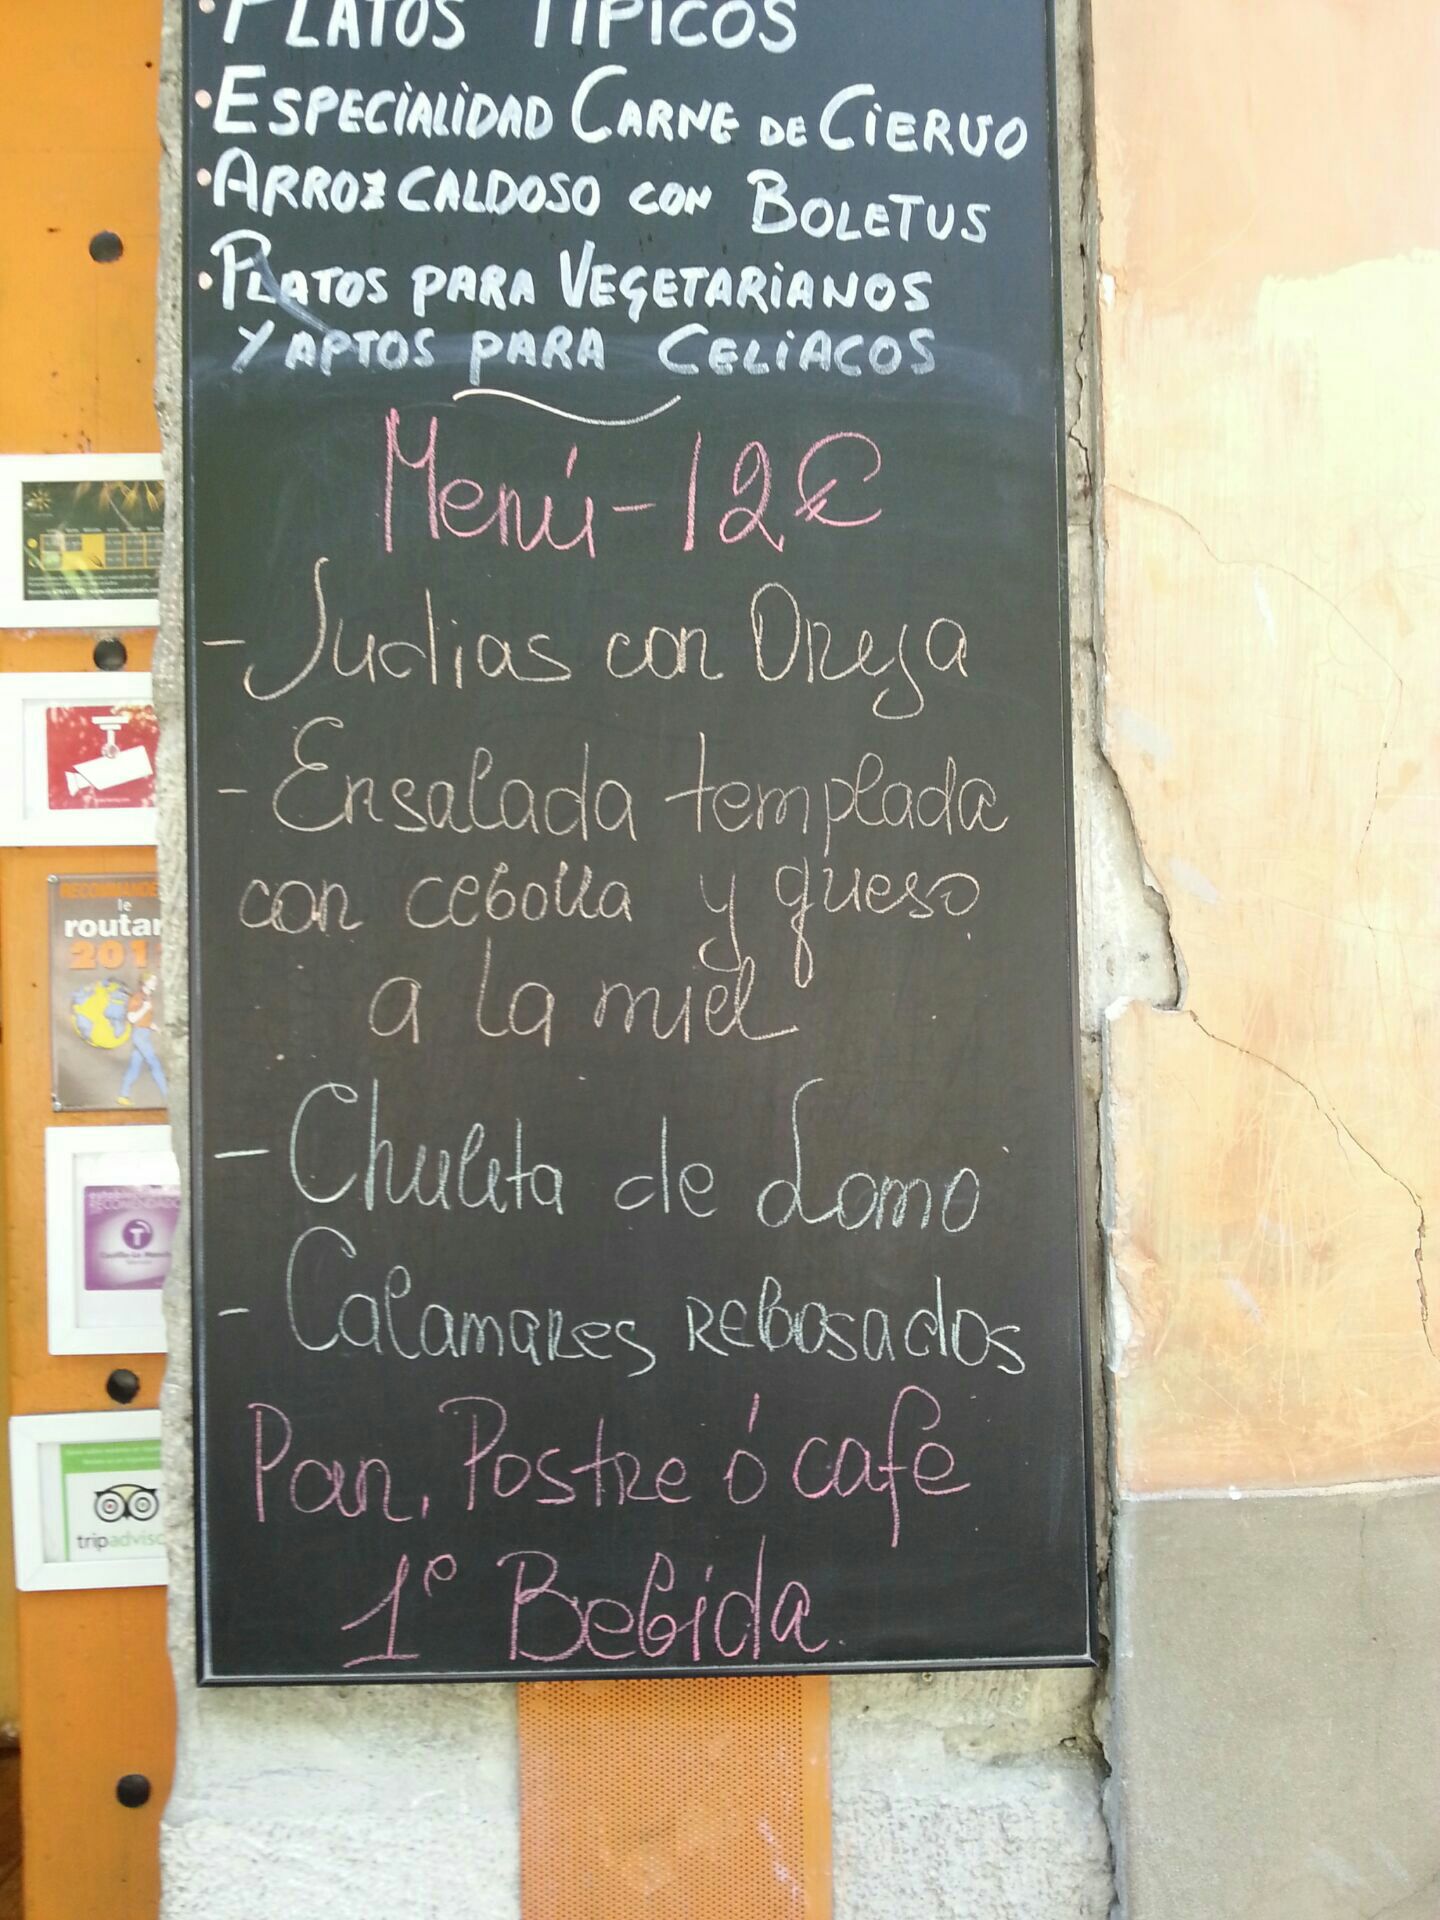 ·PLATOS TIPICOS
·ESPECIALIDAD CARNE DE CIERVO
·ARROZ CALDOSO CON BOLETUS
·PLATOS PARA VEGETARIANOS
Y APTOS PARA CELIACOS
Menú - 12€
- Judias con Oreja
- Ensalada templada
con cebolla y queso
a la miel
- Chuleta de Lomo
- Calamares rebosados
Pan, Postre ó cafe
1º Bebida
RECOMMANDE
le
routar
201
RECOMENDADO
Castilla-La Manch
tripadvisor